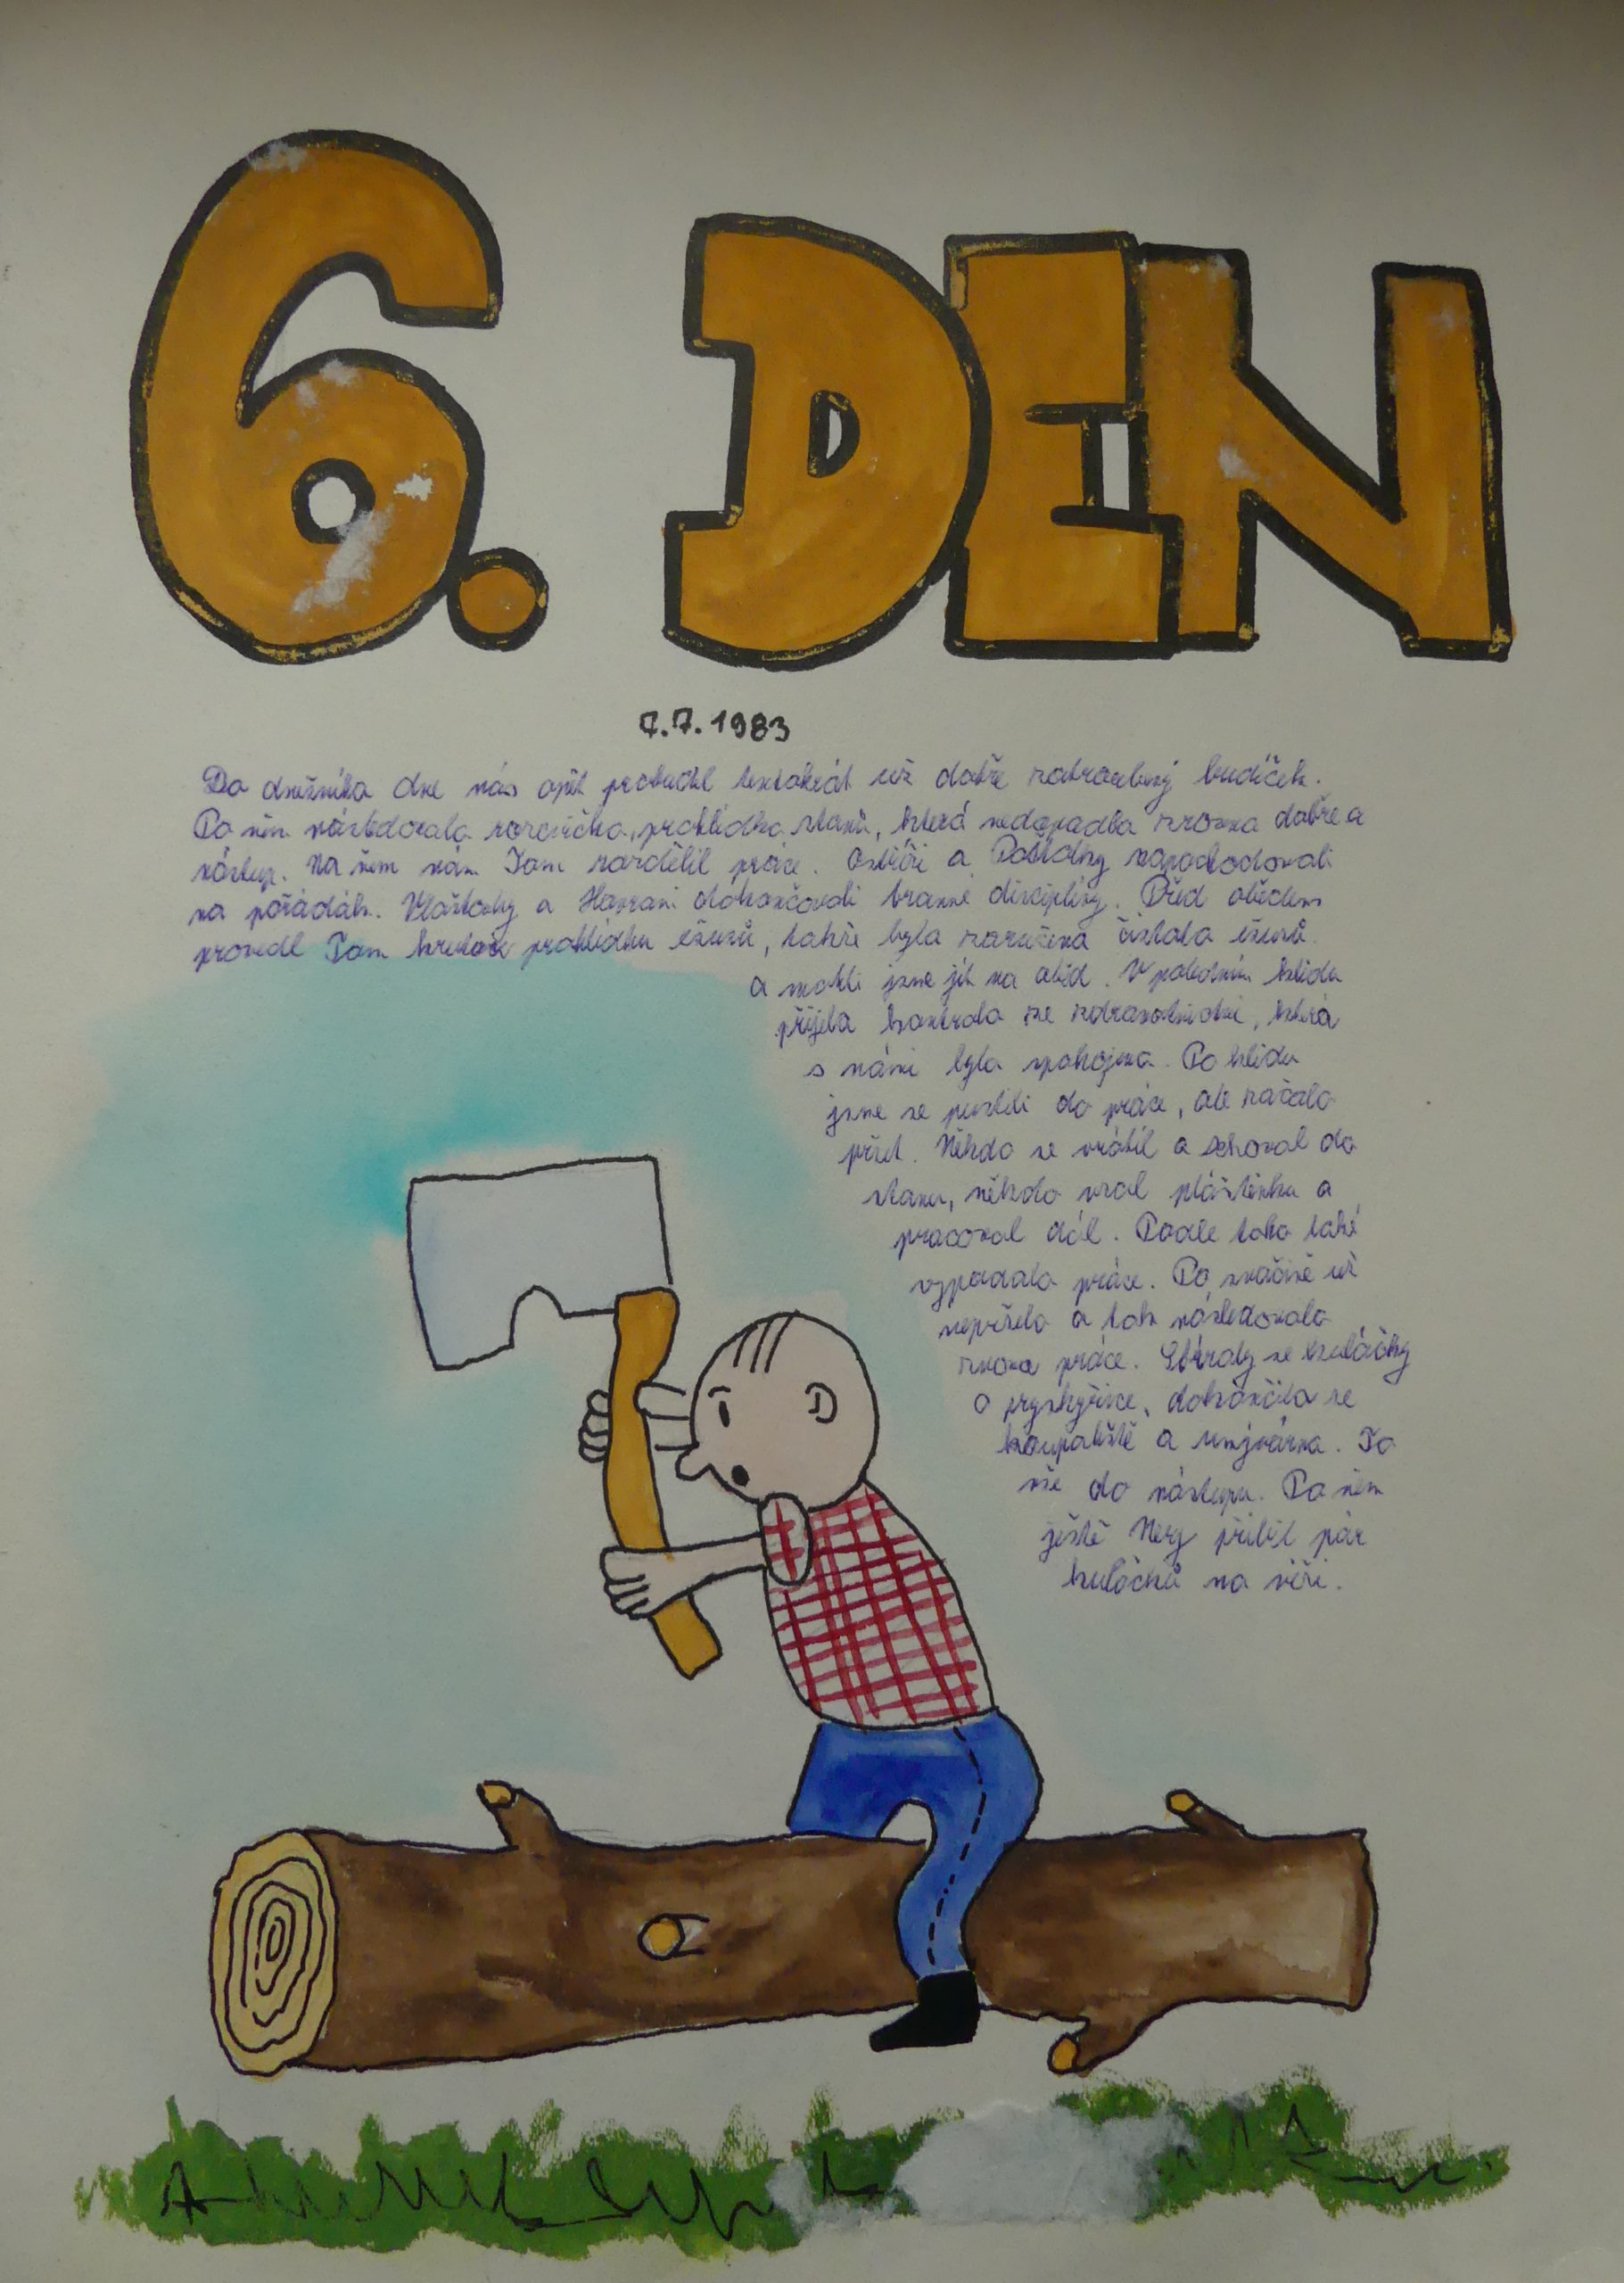 6. DEN
7.7.1983
Do dnešního dne nás opět probudil tentokrát už dobře zatroubený budíček.
Po něm následovala rozcvička, prohlídka stanů, která nedopadla zrovna dobře a
nástup. Na něm nám Tom rozdělil práce. Ostříži a Poštolky zapochodovali
na pořádák. Vlaštovky a Havrani dokončovali branné disciplíny. Před obědem
provedl Tom prohlídku ešusů, takže byla zaručena čistota ešusů
a mohli jsme jít na oběd. V poledním klidu
přijela kontrola ze zdravotnictví, která
s námi byla spokojena. Po klidu
jsme se pustili do práce, ale začalo
pršet. Někdo se vrátil a schoval do
stanu, někdo vzal pláštěnku a
pracoval dál. Podle toho také
vypadala práce. Po svačině už
nepršelo a tak následovala
znova práce. Sbíraly se kuláčky
a pryskyřice, dokončila se
koupaliště a umývárna. To
vše do nástupu. Po něm
ještě přibil pár
kuláčků na věži.